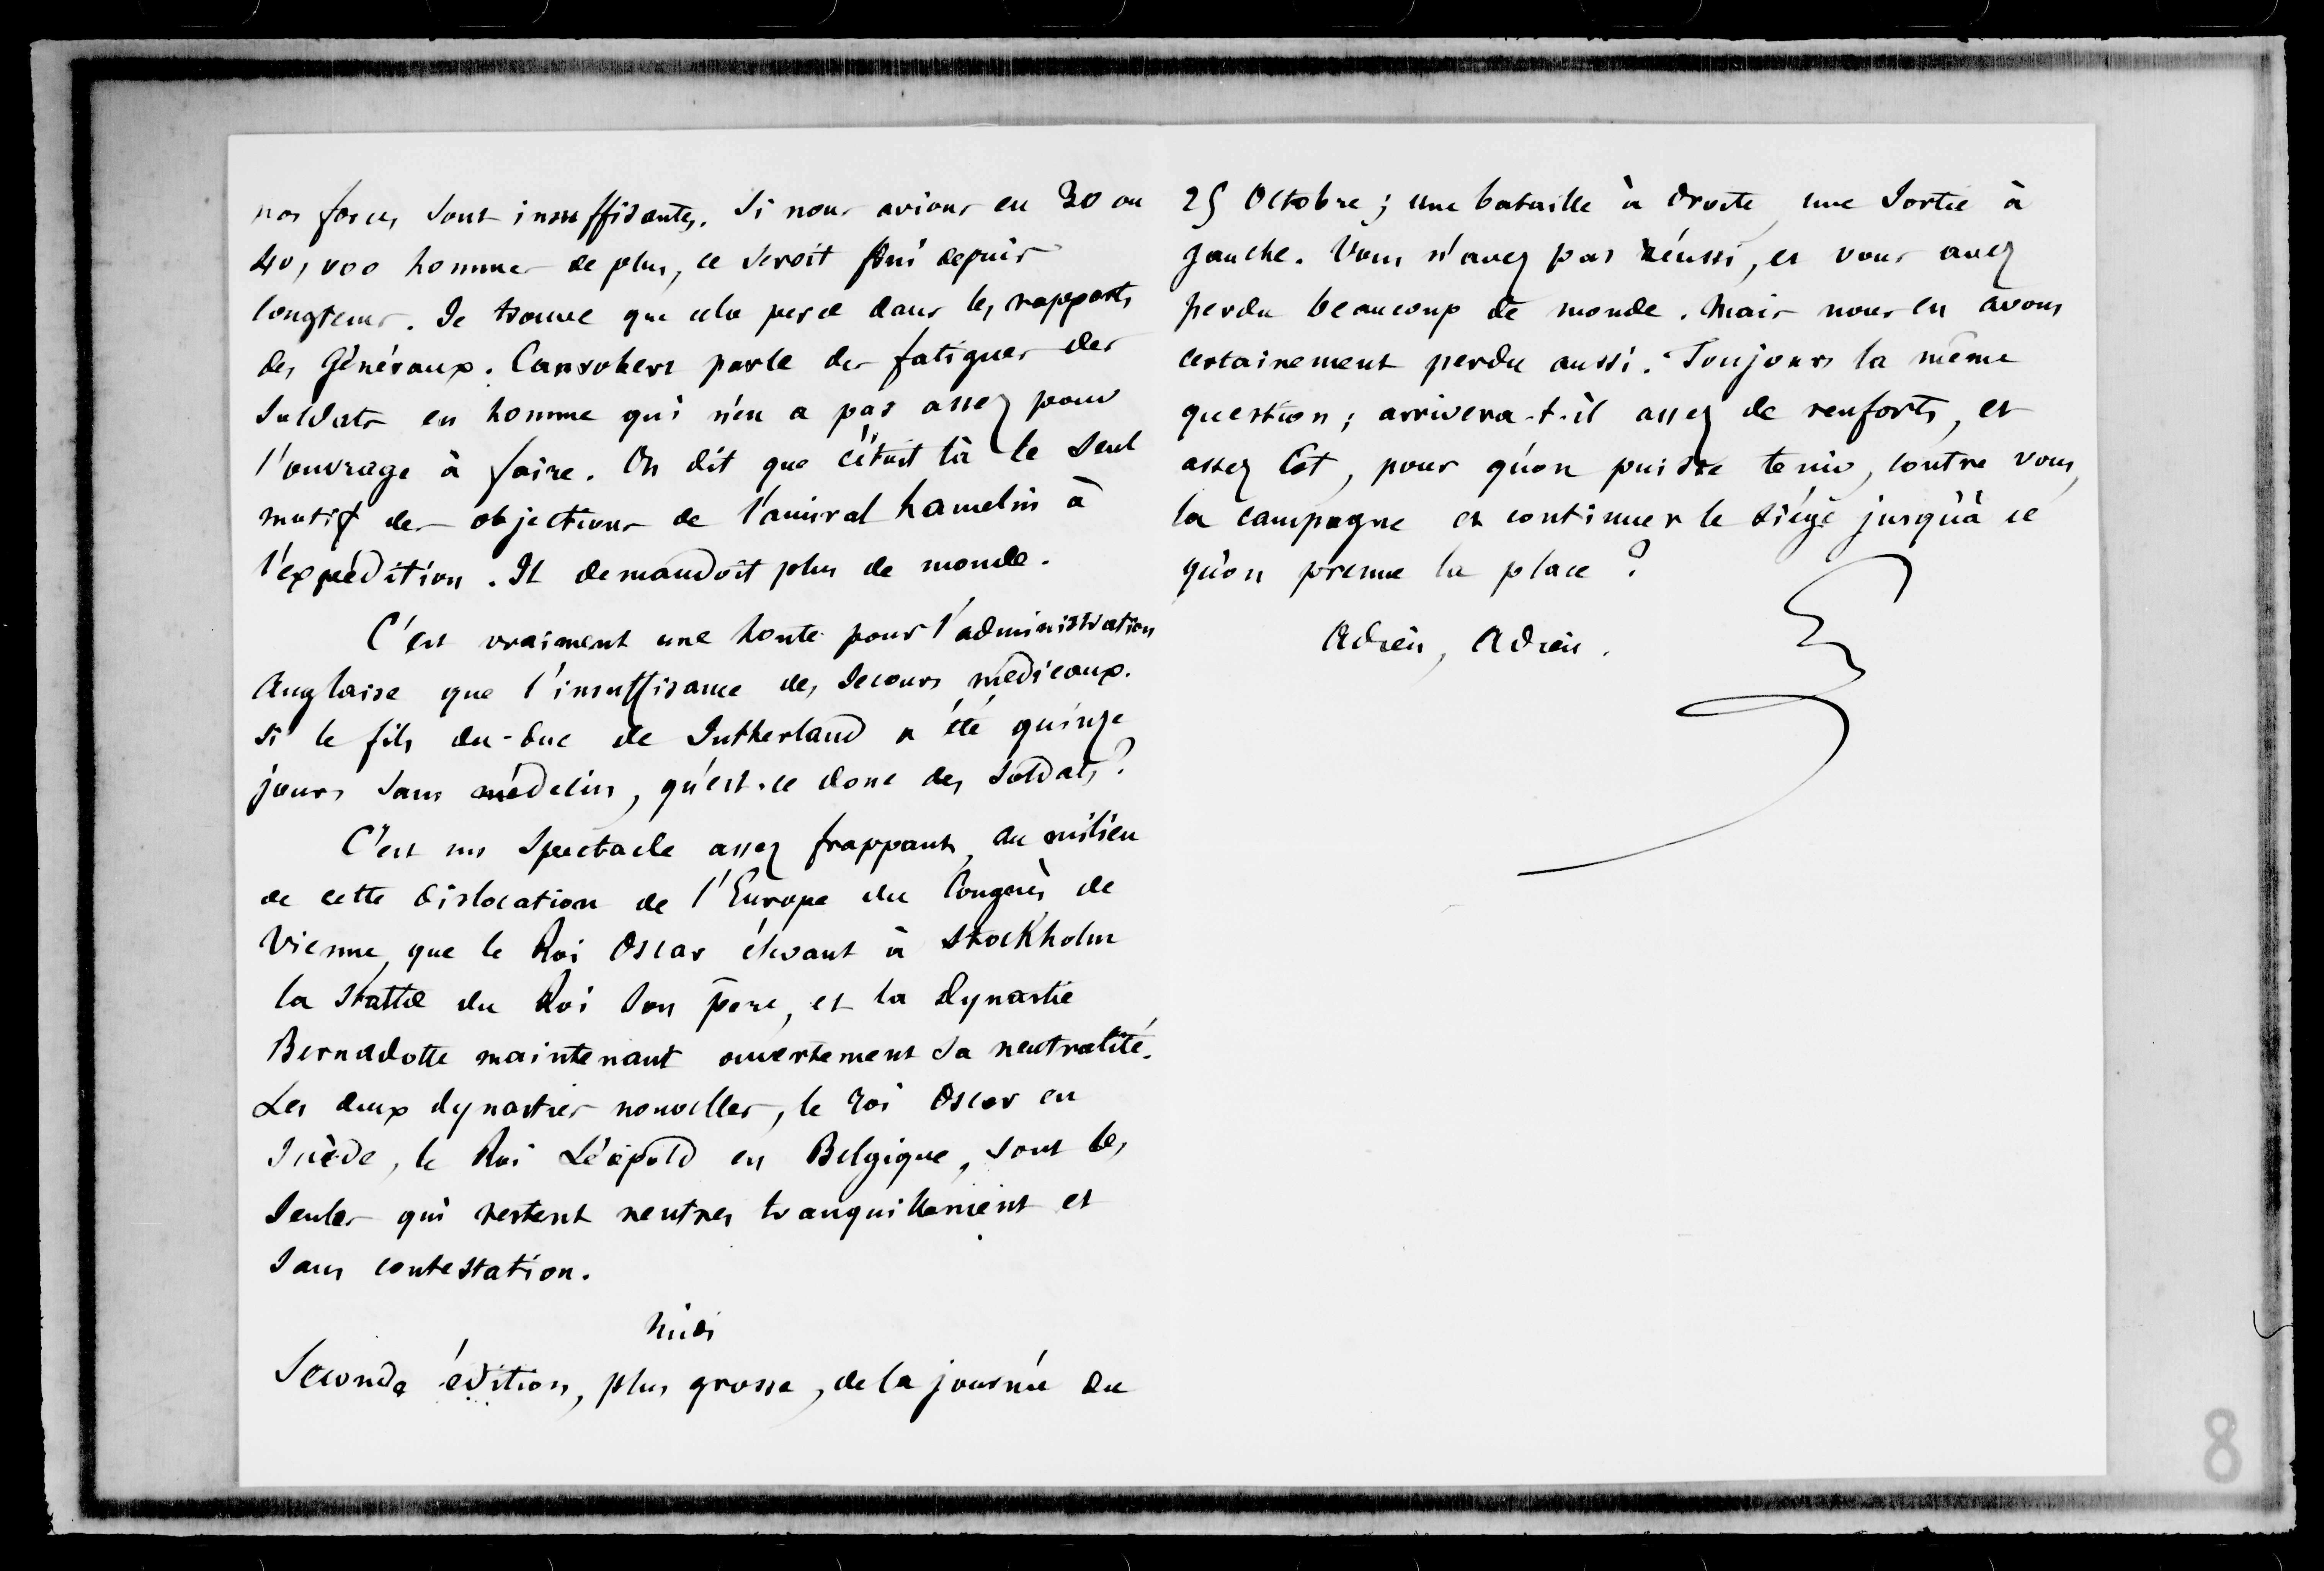 nos forces sont insuffisantes. Si nous avions eu 30 ou
40,000 hommes de plus, ce seroit fini depuis
longtems. Je trouve que cela perce dans les rapports
des Généraux. Canrobert parle des fatigues des
soldats en homme qui n'en a pas assez pour
l'ouvrage à faire. On dit que c'étoit là le seul
motif des objections de l'amiral hamelin à
l'expédition. Il demandoit plus de monde.
C'est vraiment une honte pour l'administration
Anglaise que l'insuffisance des secours médicaux.
Si le fils du duc de Sutherland a été quinze
jours sans médecin, qu'est-ce donc des soldats?
C'est un spectacle assez frappant, au milieu
de cette dislocation de l'Europe du Congrès de
Vienne, que le Roi Oscar élevant à Stockholm
la statue du Roi son père, et la dynastie
Bernadotte maintenant ouvertement sa neutralité.
Les deux dynasties nouvelles, le roi Oscar en
Suède, le Roi Léopold en Belgique, sont les
seules qui restent neutres tranquillement et
sans contestation.
Midi
Seconde édition, plus grosse, de la journée du
25 Octobre; une bataille à droite, une sortie à
gauche. Vous n'avez pas réussi, et vous avez
perdu beaucoup de monde. Mais nous en avons
certainement perdu aussi. Toujours la même
question; arrivera-t-il assez de renforts, et
assez tôt, pour qu'on puisse tenir, contre vous,
la campagne et continuer le siége jusqu'à ce
qu'on prenne la place?
Adieu, Adieu.
8